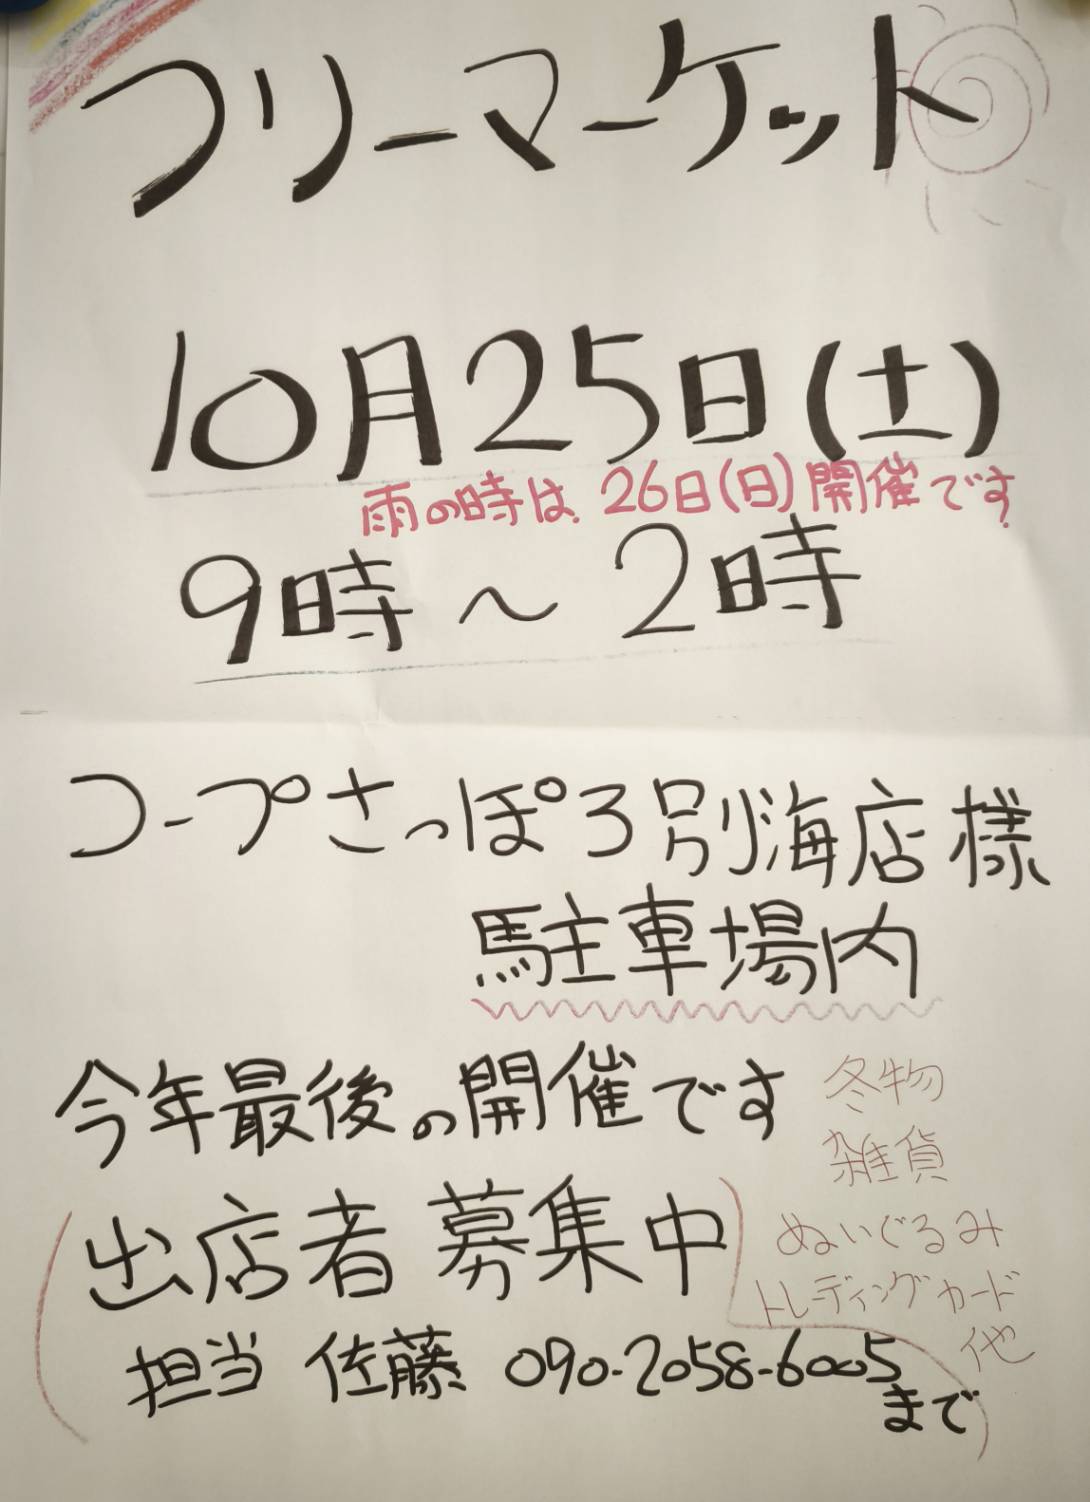 フリーマーケット
10月25日(土)
雨の時は、26日(日)開催です
9時～2時
コープさっぽろ別海店様
駐車場内
今年最後の開催です
冬物
雑貨
ぬいぐるみ
トレーディングカード
他
出店者募集中
担当 佐藤 090-2058-6005
まで